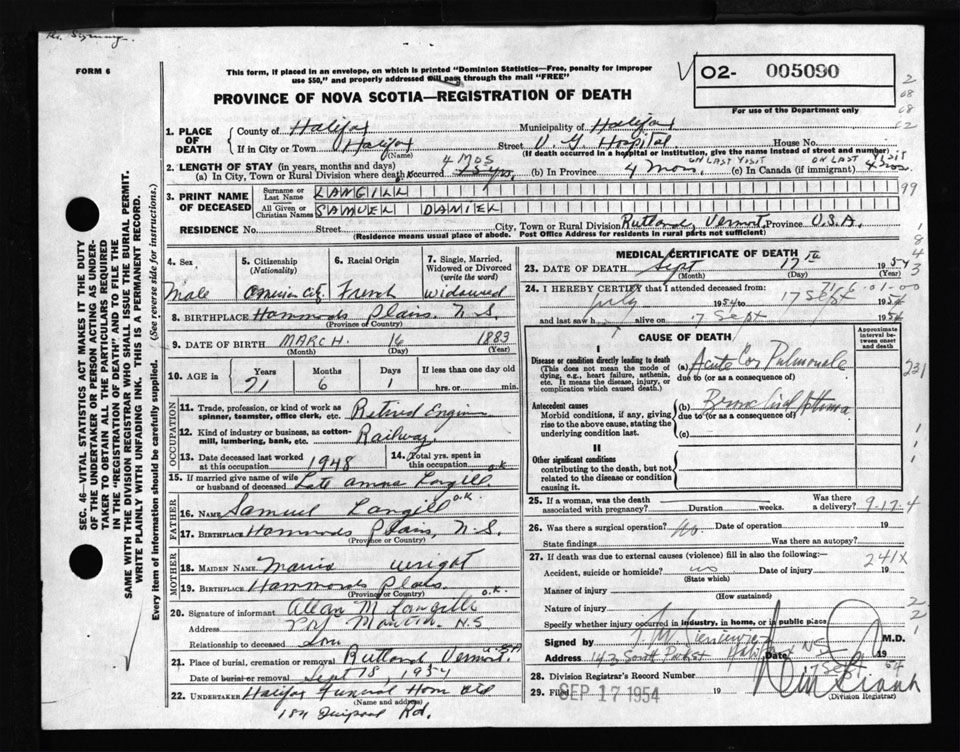 FORM 6
This form, if placed in an envelope, on which is printed "Dominion Statistics—Free, penalty for improper
use $50," and properly addressed will pass through the mail "FREE"
PROVINCE OF NOVA SCOTIA—REGISTRATION OF DEATH
O2- 005090
For use of the Department only
SEC. 46—VITAL STATISTICS ACT MAKES IT THE DUTY
OF THE UNDERTAKER OR PERSON ACTING AS UNDER-
TAKER TO OBTAIN ALL THE PARTICULARS REQUIRED
IN THE "REGISTRATION OF DEATH" AND TO FILE THE
SAME WITH THE DIVISION REGISTRAR WHO SHALL ISSUE THE BURIAL PERMIT.
WRITE PLAINLY WITH UNFADING INK. THIS IS A PERMANENT RECORD.
Every item of information should be carefully supplied. (See reverse side for instructions.)
1. PLACE OF DEATH County of Halifax Municipality of Halifax
If in City or Town Halifax (Name) Street V. G. Hospital House No.
(If death occurred in a hospital or institution, give the name instead of street and number)
2. LENGTH OF STAY (in years, months and days)
(a) In City, Town or Rural Division where death occurred 4 Mos (b) In Province 4 Mos. ON LAST VISIT (c) In Canada (if immigrant) 4 mos. ON LAST VISIT
3. PRINT NAME OF DECEASED Surname or Last Name LANGILL
All Given or Christian Names SAMUEL DANIEL
RESIDENCE No. Street City, Town or Rural Division Rutland, Vermont, Province U.S.A.
(Residence means usual place of abode. Post Office Address for residents in rural parts not sufficient)
4. Sex 5. Citizenship (Nationality) 6. Racial Origin 7. Single, Married, Widowed or Divorced (write the word)
Male French Widowed
8. BIRTHPLACE Hammonds Plains, N.S.
(Province or Country)
9. DATE OF BIRTH MARCH 16 1883
(Month) (Day) (Year)
10. AGE in Years Months Days If less than one day old
71 6 1 hrs. or min.
11. Trade, profession, or kind of work as spinner, teamster, office clerk, etc. Retired Engineer
12. Kind of industry or business, as cotton-mill, lumbering, bank, etc. Railway
13. Date deceased last worked at this occupation 1948 14. Total yrs. spent in this occupation
15. If married give name of wife or husband of deceased Late Langill o.k.
FATHER
16. Name Samuel Langill o.k.
17. BIRTHPLACE Hammonds Plains, N.S.
(Province or Country)
MOTHER
18. MAIDEN NAME Maria Wright
19. BIRTHPLACE Hammonds Plains o.k.
(Province or Country)
20. Signature of informant Allan M Langille
Address N.S
Relationship to deceased Son
21. Place of burial, cremation or removal Rutland Vermont. U.S.A
Date of burial or removal Sept 18, 1954
22. UNDERTAKER Halifax Funeral Home Ltd
(Name and address)
Rd.
MEDICAL CERTIFICATE OF DEATH
23. DATE OF DEATH Sept 17th 1954
(Month) (Day) (Year)
24. I HEREBY CERTIFY that I attended deceased from:
July 1954 to 17 Sept 1954
and last saw h alive on 17 Sept 1954
CAUSE OF DEATH
Approximate interval between onset and death
I
Disease or condition directly leading to death
(This does not mean the mode of dying, e.g., heart failure, asthenia, etc. It means the disease, injury, or complication which caused death.)
(a) Acute Cor Pulmonale
due to (or as a consequence of)
Antecedent causes
Morbid conditions, if any, giving rise to the above cause, stating the underlying condition last.
(b) Bronchial Asthma
due to (or as a consequence of)
(c)
II
Other significant conditions
contributing to the death, but not related to the disease or condition causing it.
25. If a woman, was the death associated with pregnancy? Duration weeks. Was there a delivery?
9-17-4
26. Was there a surgical operation? No. Date of operation 19
State findings Was there an autopsy?
27. If death was due to external causes (violence) fill in also the following:—
241X
Accident, suicide or homicide? no Date of injury 19
(State which)
Manner of injury
(How sustained)
Nature of injury
Specify whether injury occurred in industry, in home, or in public place
Signed by M.D.
Address Halifax NS Date 17 Sept 19 54
28. Division Registrar's Record Number
29. Filed SEP 17 1954 19
(Division Registrar)